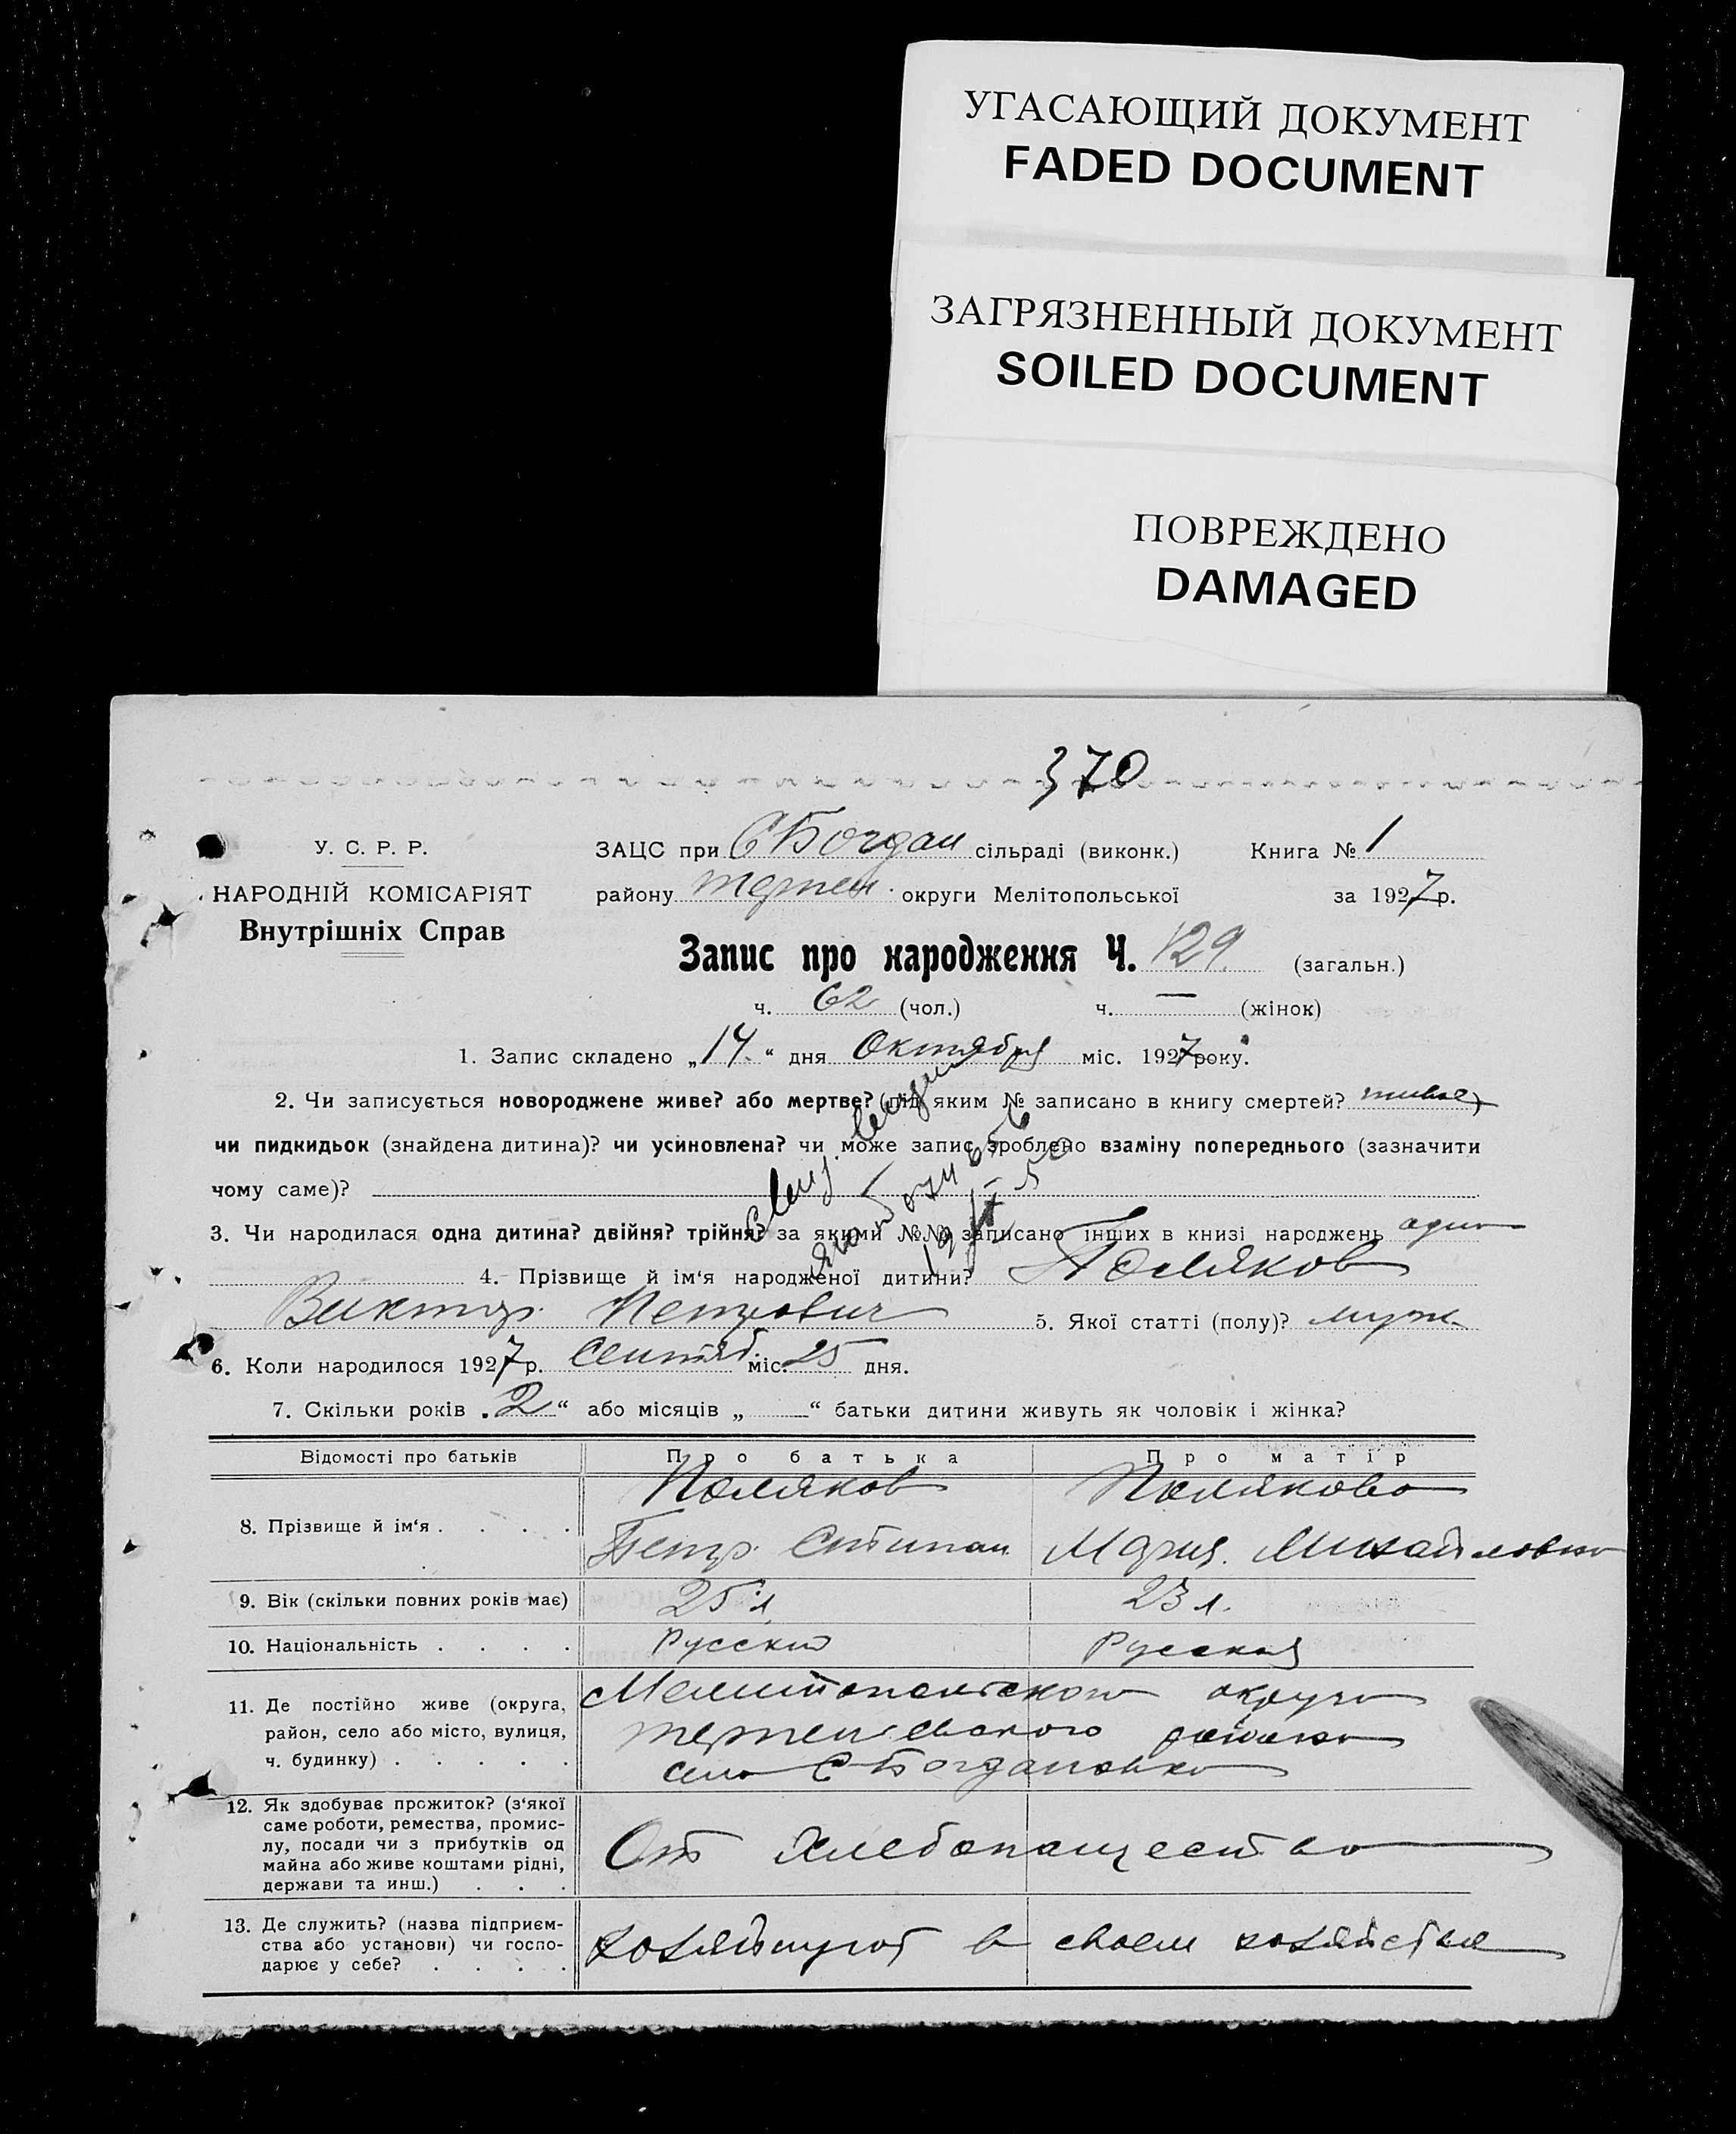 УГАСАЮЩИЙ ДОКУМЕНТ
FADED DOCUMENT
ЗАГРЯЗНЕННЫЙ ДОКУМЕНТ
SOILED DOCUMENT
ПОВРЕЖДЕНО
DAMAGED
370
У. С. Р. Р.
НАРОДНІЙ КОМІСАРІЯТ
Внутрішніх Справ
ЗАЦС при С Богдан сільраді (виконк.) Книга № 1
району округи Мелітопольської за 1927 р.
Запис про народження Ч. 129 (загальн.)
ч. 62 (чол.) ч. — (жінок)
1. Запис складено „14“ дня Октября міс. 1927 року.
2. Чи записується новороджене живе? або мертве? (під яким № записано в книгу смертей? живое)
чи пидкидьок (знайдена дитина)? чи усиновлена? чи може запис зроблено взаміну попереднього (зазначити
чому саме)?
3. Чи народилася одна дитина? двійня? трійня? за якими №№ записано інших в книзі народжень одно
4. Прізвище й ім‘я народженої дитини? Поляков
Виктор Петрович 5. Якої статті (полу)? муж.
6. Коли народилося 1927 р. Сентяб. міс. 25 дня.
7. Скільки років „2“ або місяців „ —“ батьки дитини живуть як чоловік і жінка?
Відомості про батьків Про батька Про матір
8. Прізвище й ім‘я . . . . Поляков Полякова
Петр Степан Мария Михайловна
9. Вік (скільки повних років має) 25 л. 23 л.
10. Національність . . . . Русский Русская
11. Де постійно живе (округа, район, село або місто, вулиця, ч. будинку) . . . . . Мелитопольского округа
района
село С Богдановка
12. Як здобуває прожиток? (з‘якої саме роботи, ремества, промислу, посади чи з прибутків од майна або живе коштами рідні, держави та инш.) . . . От хлебопащества
13. Де служить? (назва підприємства або установи) чи господарює у себе? . . . . хозяйнуют в своем хозяйстве